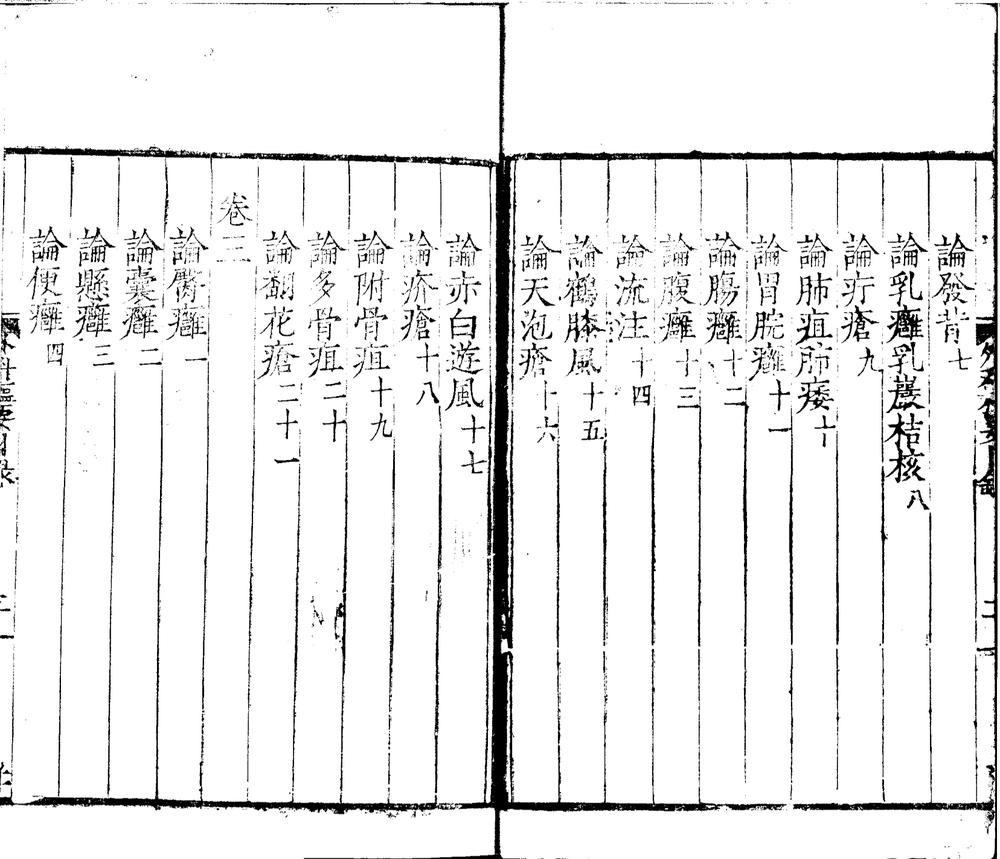 論發背七
論乳癰乳巖桔核八
論疔瘡九
論肺疽肺痿十
論胃脘癰十一
論腸癰十二
論腹癰十三
論流注十四
論鶴膝風十五
論天泡瘡十六
論赤白遊風十七
論疥瘡十八
論附骨疽十九
論多骨疽二十
論翻花瘡二十一
卷三
論臀癰一
論囊癰二
論懸癰三
論便癰四
外科樞要目錄
三